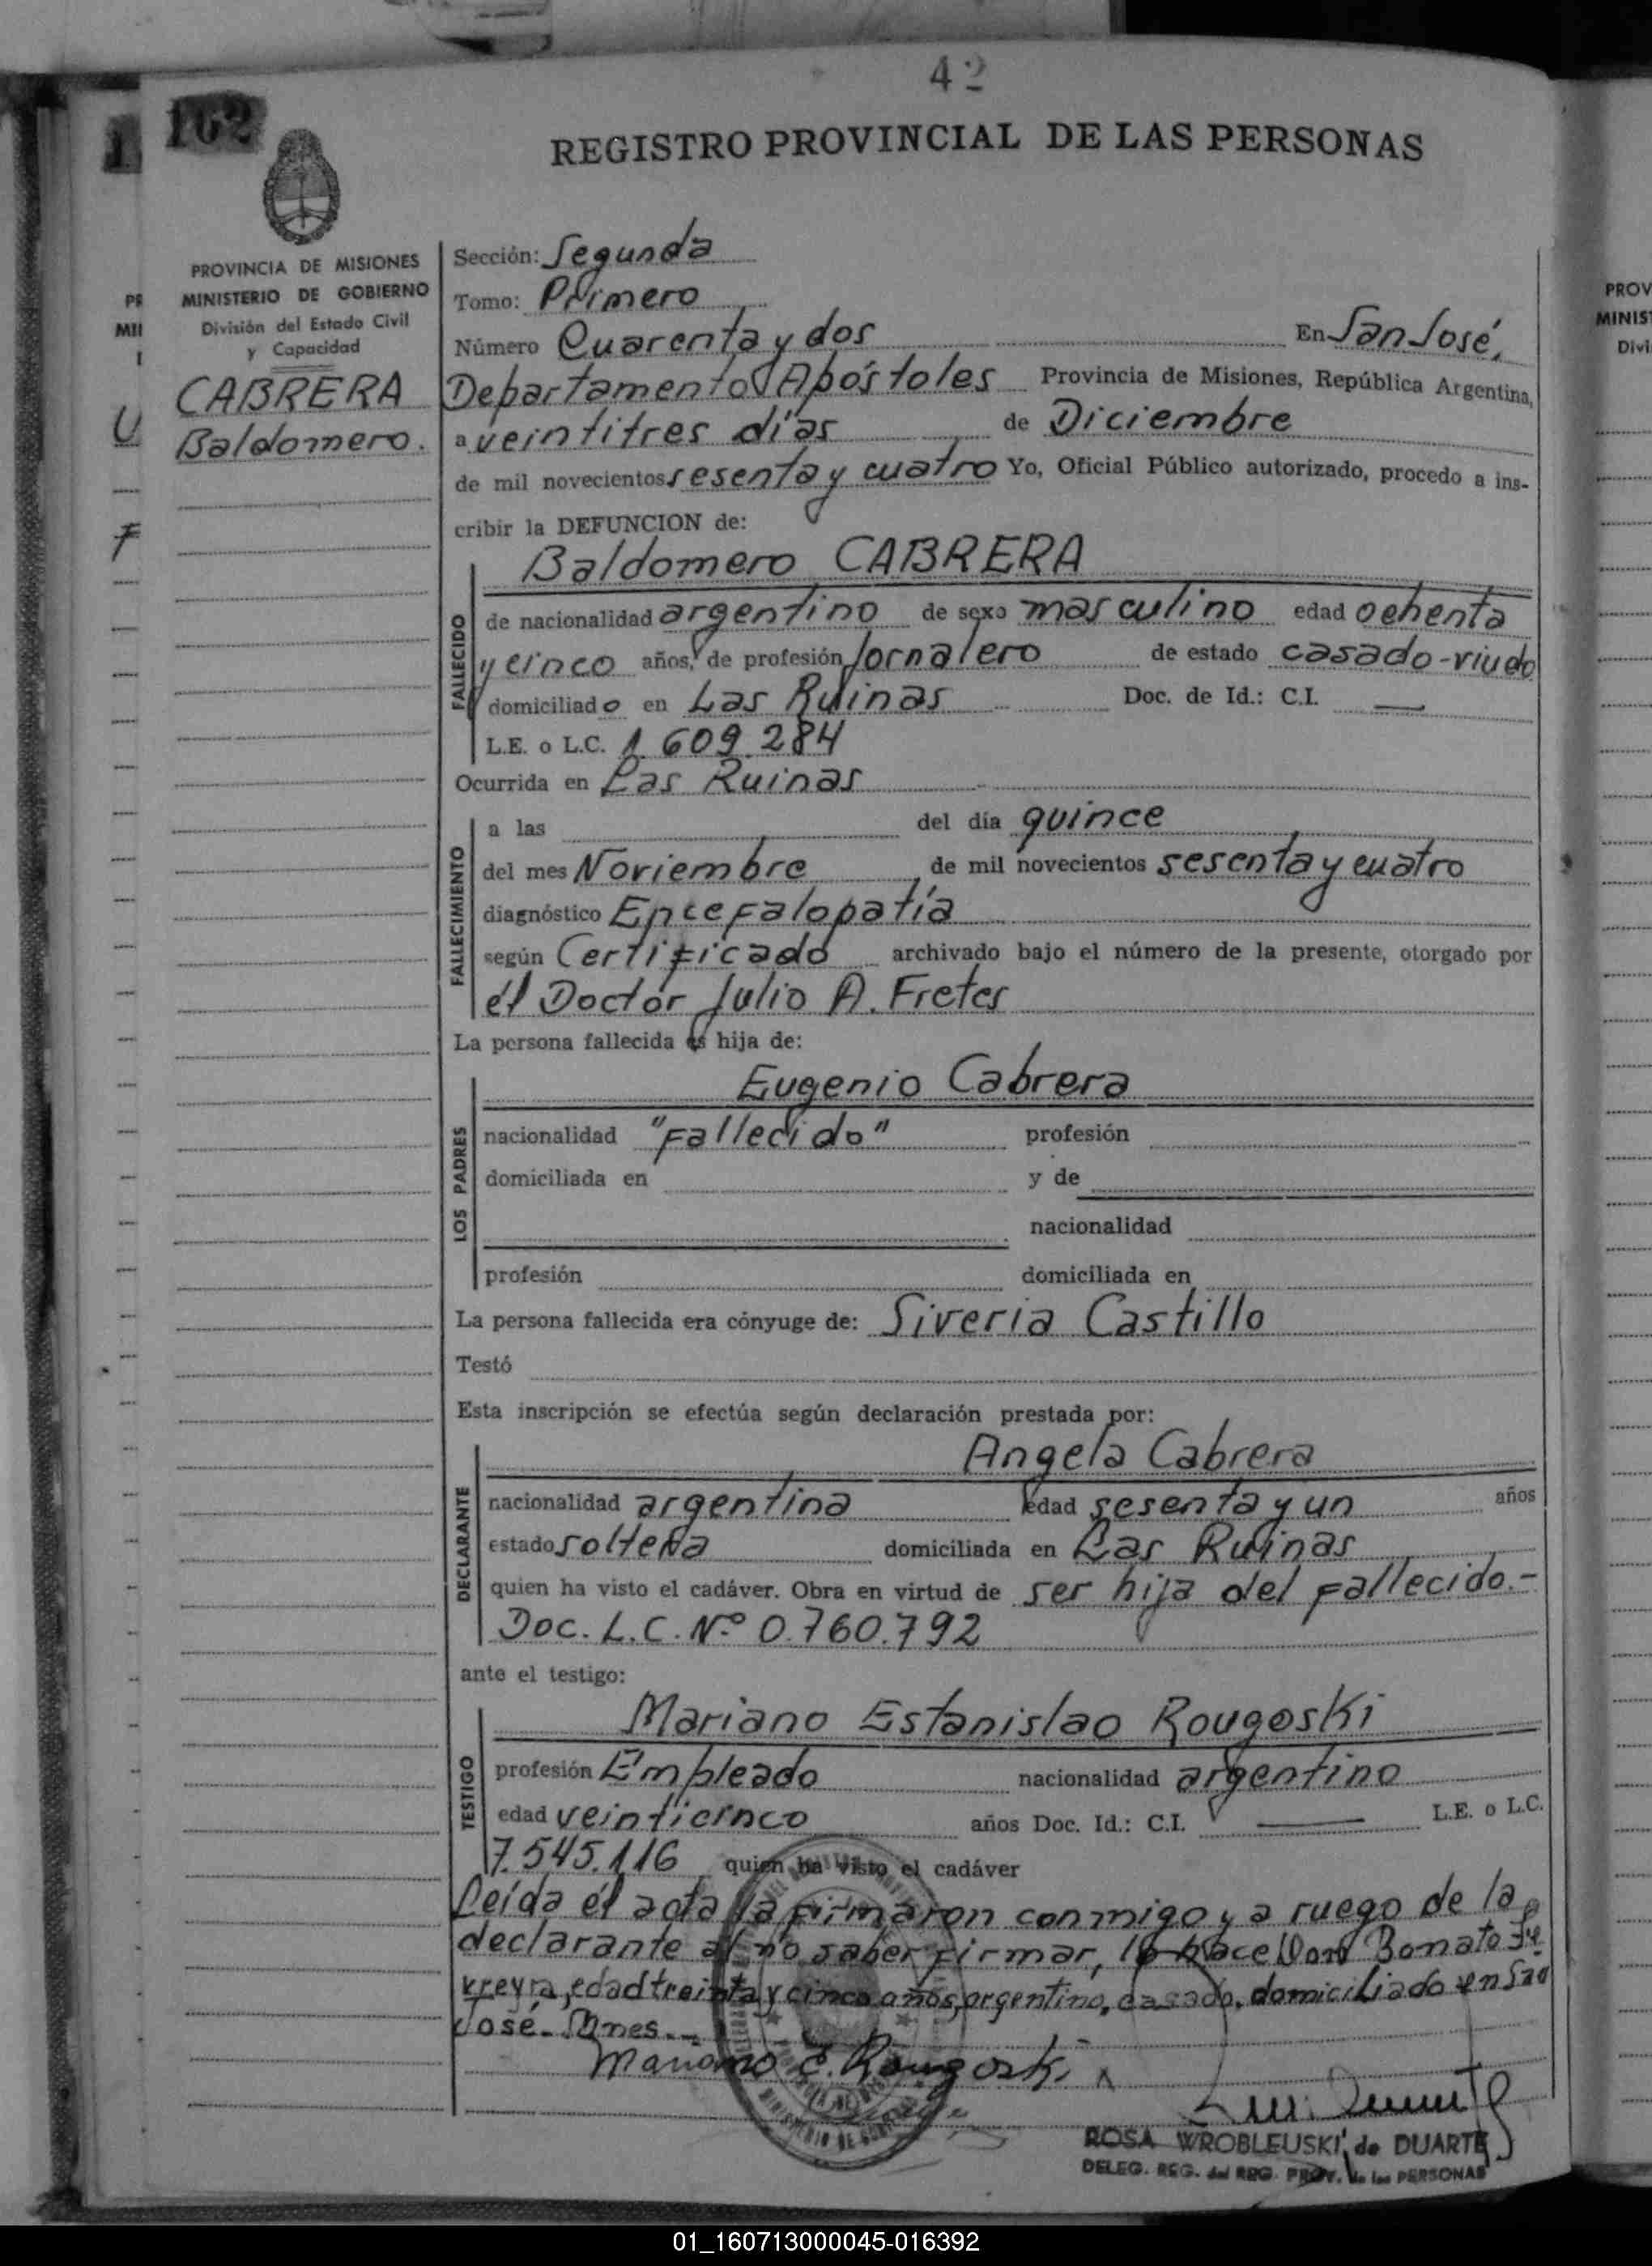 42
162
REGISTRO PROVINCIAL DE LAS PERSONAS
PROVINCIA DE MISIONES
MINISTERIO DE GOBIERNO
División del Estado Civil
y Capacidad
CABRERA
Baldomero.
Sección: Segunda
Tomo: Primero
Número Cuarenta y dos En San José,
Departamento Apóstoles Provincia de Misiones, República Argentina,
a veintitres días de Diciembre
de mil novecientos sesenta y cuatro Yo, Oficial Público autorizado, procedo a ins-
cribir la DEFUNCION de:
Baldomero CABRERA
FALLECIDO
de nacionalidad argentino de sexo masculino edad ochenta
y cinco años, de profesión Jornalero de estado casado-viudo
domiciliado en Las Ruinas Doc. de Id.: C.I. —
L.E. o L.C. 1.609.284
Ocurrida en Las Ruinas
FALLECIMIENTO
a las del día quince
del mes Noviembre de mil novecientos sesenta y cuatro
diagnóstico Encefalopatía
según Certificado archivado bajo el número de la presente, otorgado por
él Doctor Julio A. Fretes
La persona fallecida es hija de:
LOS PADRES
Eugenio Cabrera
nacionalidad "Fallecido" profesión
domiciliada en y de
nacionalidad
profesión domiciliada en
La persona fallecida era cónyuge de: Siveria Castillo
Testó
Esta inscripción se efectúa según declaración prestada por:
DECLARANTE
Angela Cabrera
nacionalidad argentina edad sesenta y un años
estado soltera domiciliada en Las Ruinas
quien ha visto el cadáver. Obra en virtud de ser hija del fallecido.-
Doc. L.C. Nº 0.760.792
ante el testigo:
TESTIGO
Mariano Estanislao Rougoski
profesión Empleado nacionalidad argentino
edad veinticinco años Doc. Id.: C.I. — L.E. o L.C.
7.545.116 quien ha visto el cadáver
Leída él acta la firmaron conmigo y a ruego de la
declarante al no saber firmar, lo hace Don Bonato Fe
rreyra, edad treinta y cinco años, argentino, casado, domiciliado en San
José. Mnes.-
Mariano E. Rougoski
ROSA WROBLEUSKI de DUARTE
DELEG. REG. del REG. PROV. de las PERSONAS
01_160713000045-016392